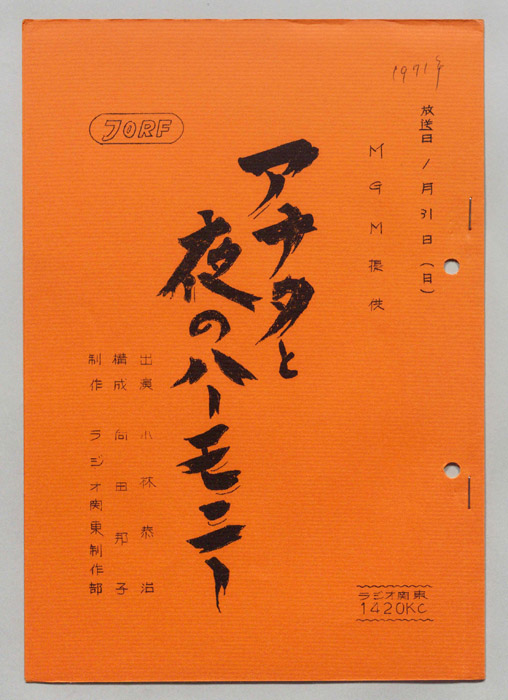 1971年
放送日 1月31日(日)
MGM提供
アナタと
夜のハーモニー
JORF
出演 小林恭治
構成 向田邦子
制作 ラジオ関東制作部
ラジオ関東
1420KC